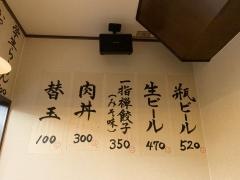 瓶ビール
520
生ビール
470
一指禅餃子
(みそ味)
350
肉丼
300
替玉
100